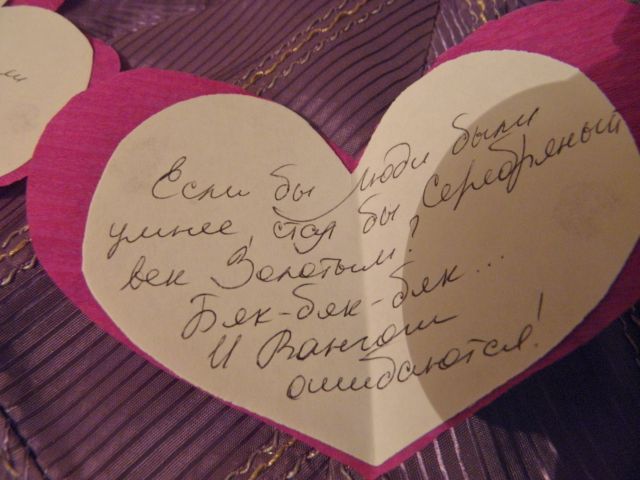 Если бы люди были
умнее, стал бы Серебряный
век Золотым?
Бяк-бяк-бяк...
И Вангои
ошибаются!